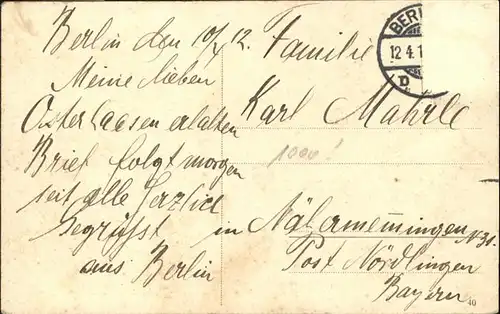 Berlin den 10/4 12.
Meine Lieben
Osterhaasen erhalten
Brief folgt morgen
seit alle herzlich
Gegrüßst
aus Berlin
Familie
Karl Mährle
1000!
in Nähermemmingen N 31.
Post Nördlingen
Bayern
BERLIN
12 4 1
D